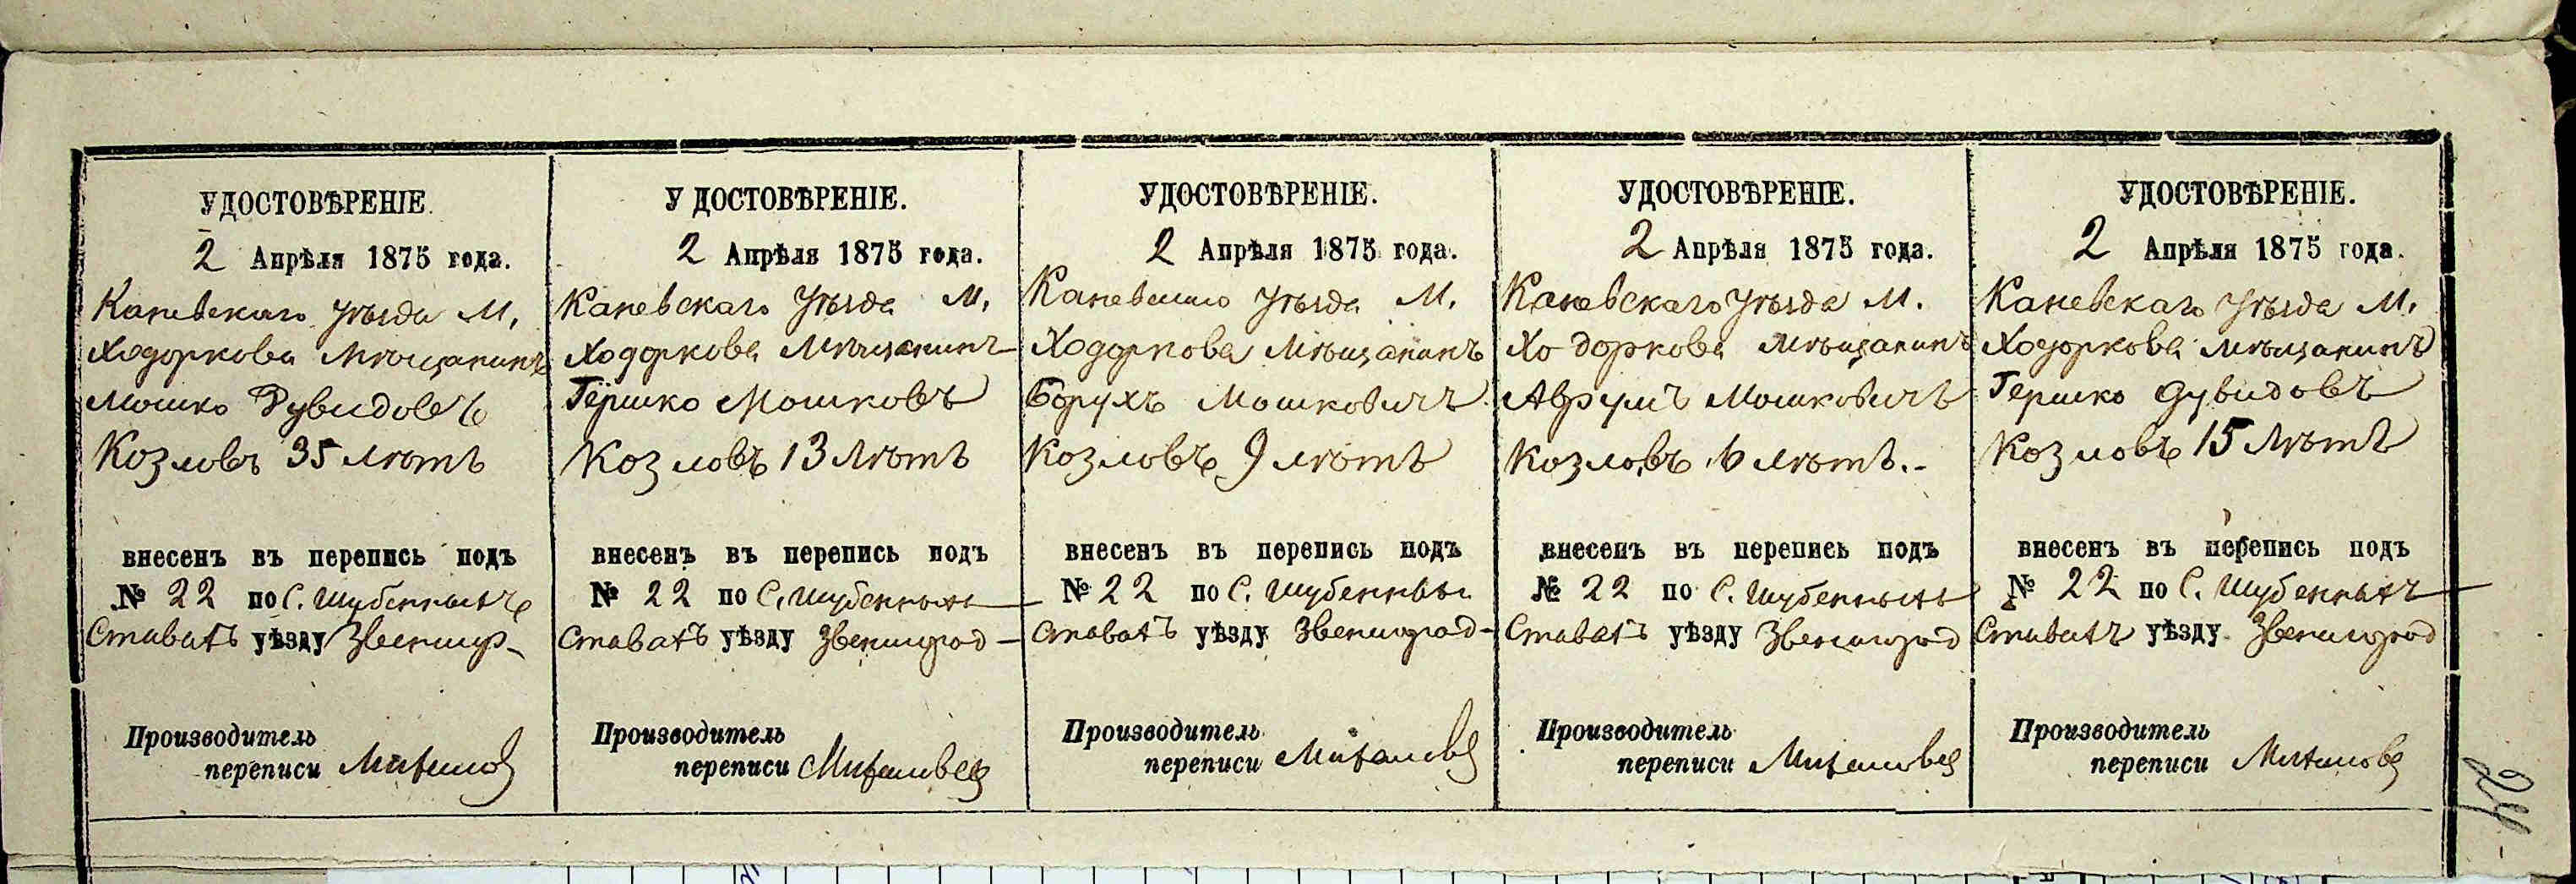 УДОСТОВѢРЕНІЕ.
2 Апрѣля 1875 года.
Каневскаго уѣзда М.
Ходоркова Мѣщанинъ
Мошко Дувидовъ
Козловъ 35 лѣтъ
внесенъ въ перепись подъ
№ 22 по С. Шубенныхъ
Ставахъ уѣзду Звенигор-
Производитель
переписи
УДОСТОВѢРЕНІЕ.
2 Апрѣля 1875 года.
Каневскаго уѣзда М.
Ходоркова Мѣщанинъ
Гершко Мошковъ
Козловъ 13 лѣтъ
внесенъ въ перепись подъ
№ 22 по С. Шубенныхъ
Ставахъ уѣзду Звенигород-
Производитель
переписи
УДОСТОВѢРЕНІЕ.
2 Апрѣля 1875 года.
Каневскаго уѣзда М.
Ходоркова Мѣщанинъ
Борухъ Мошковичъ
Козловъ 9 лѣтъ
внесенъ въ перепись подъ
№ 22 по С. Шубенныхъ
Ставахъ уѣзду Звенигород-
Производитель
переписи
УДОСТОВѢРЕНІЕ.
2 Апрѣля 1875 года.
Каневскаго уѣзда М.
Ходоркова Мѣщанинъ
Аврумъ Мошковичъ
Козловъ 6 лѣтъ.-
внесенъ въ перепись подъ
№ 22 по С. Шубенныхъ
Ставахъ уѣзду Звенигород
Производитель
переписи
УДОСТОВѢРЕНІЕ.
2 Апрѣля 1875 года.
Каневскаго уѣзда М.
Ходоркова Мѣщанинъ
Гершко Дувидовъ
Козловъ 15 лѣтъ
внесенъ въ перепись подъ
№ 22 по С. Шубенныхъ
Ставахъ уѣзду Звенигород
Производитель
переписи